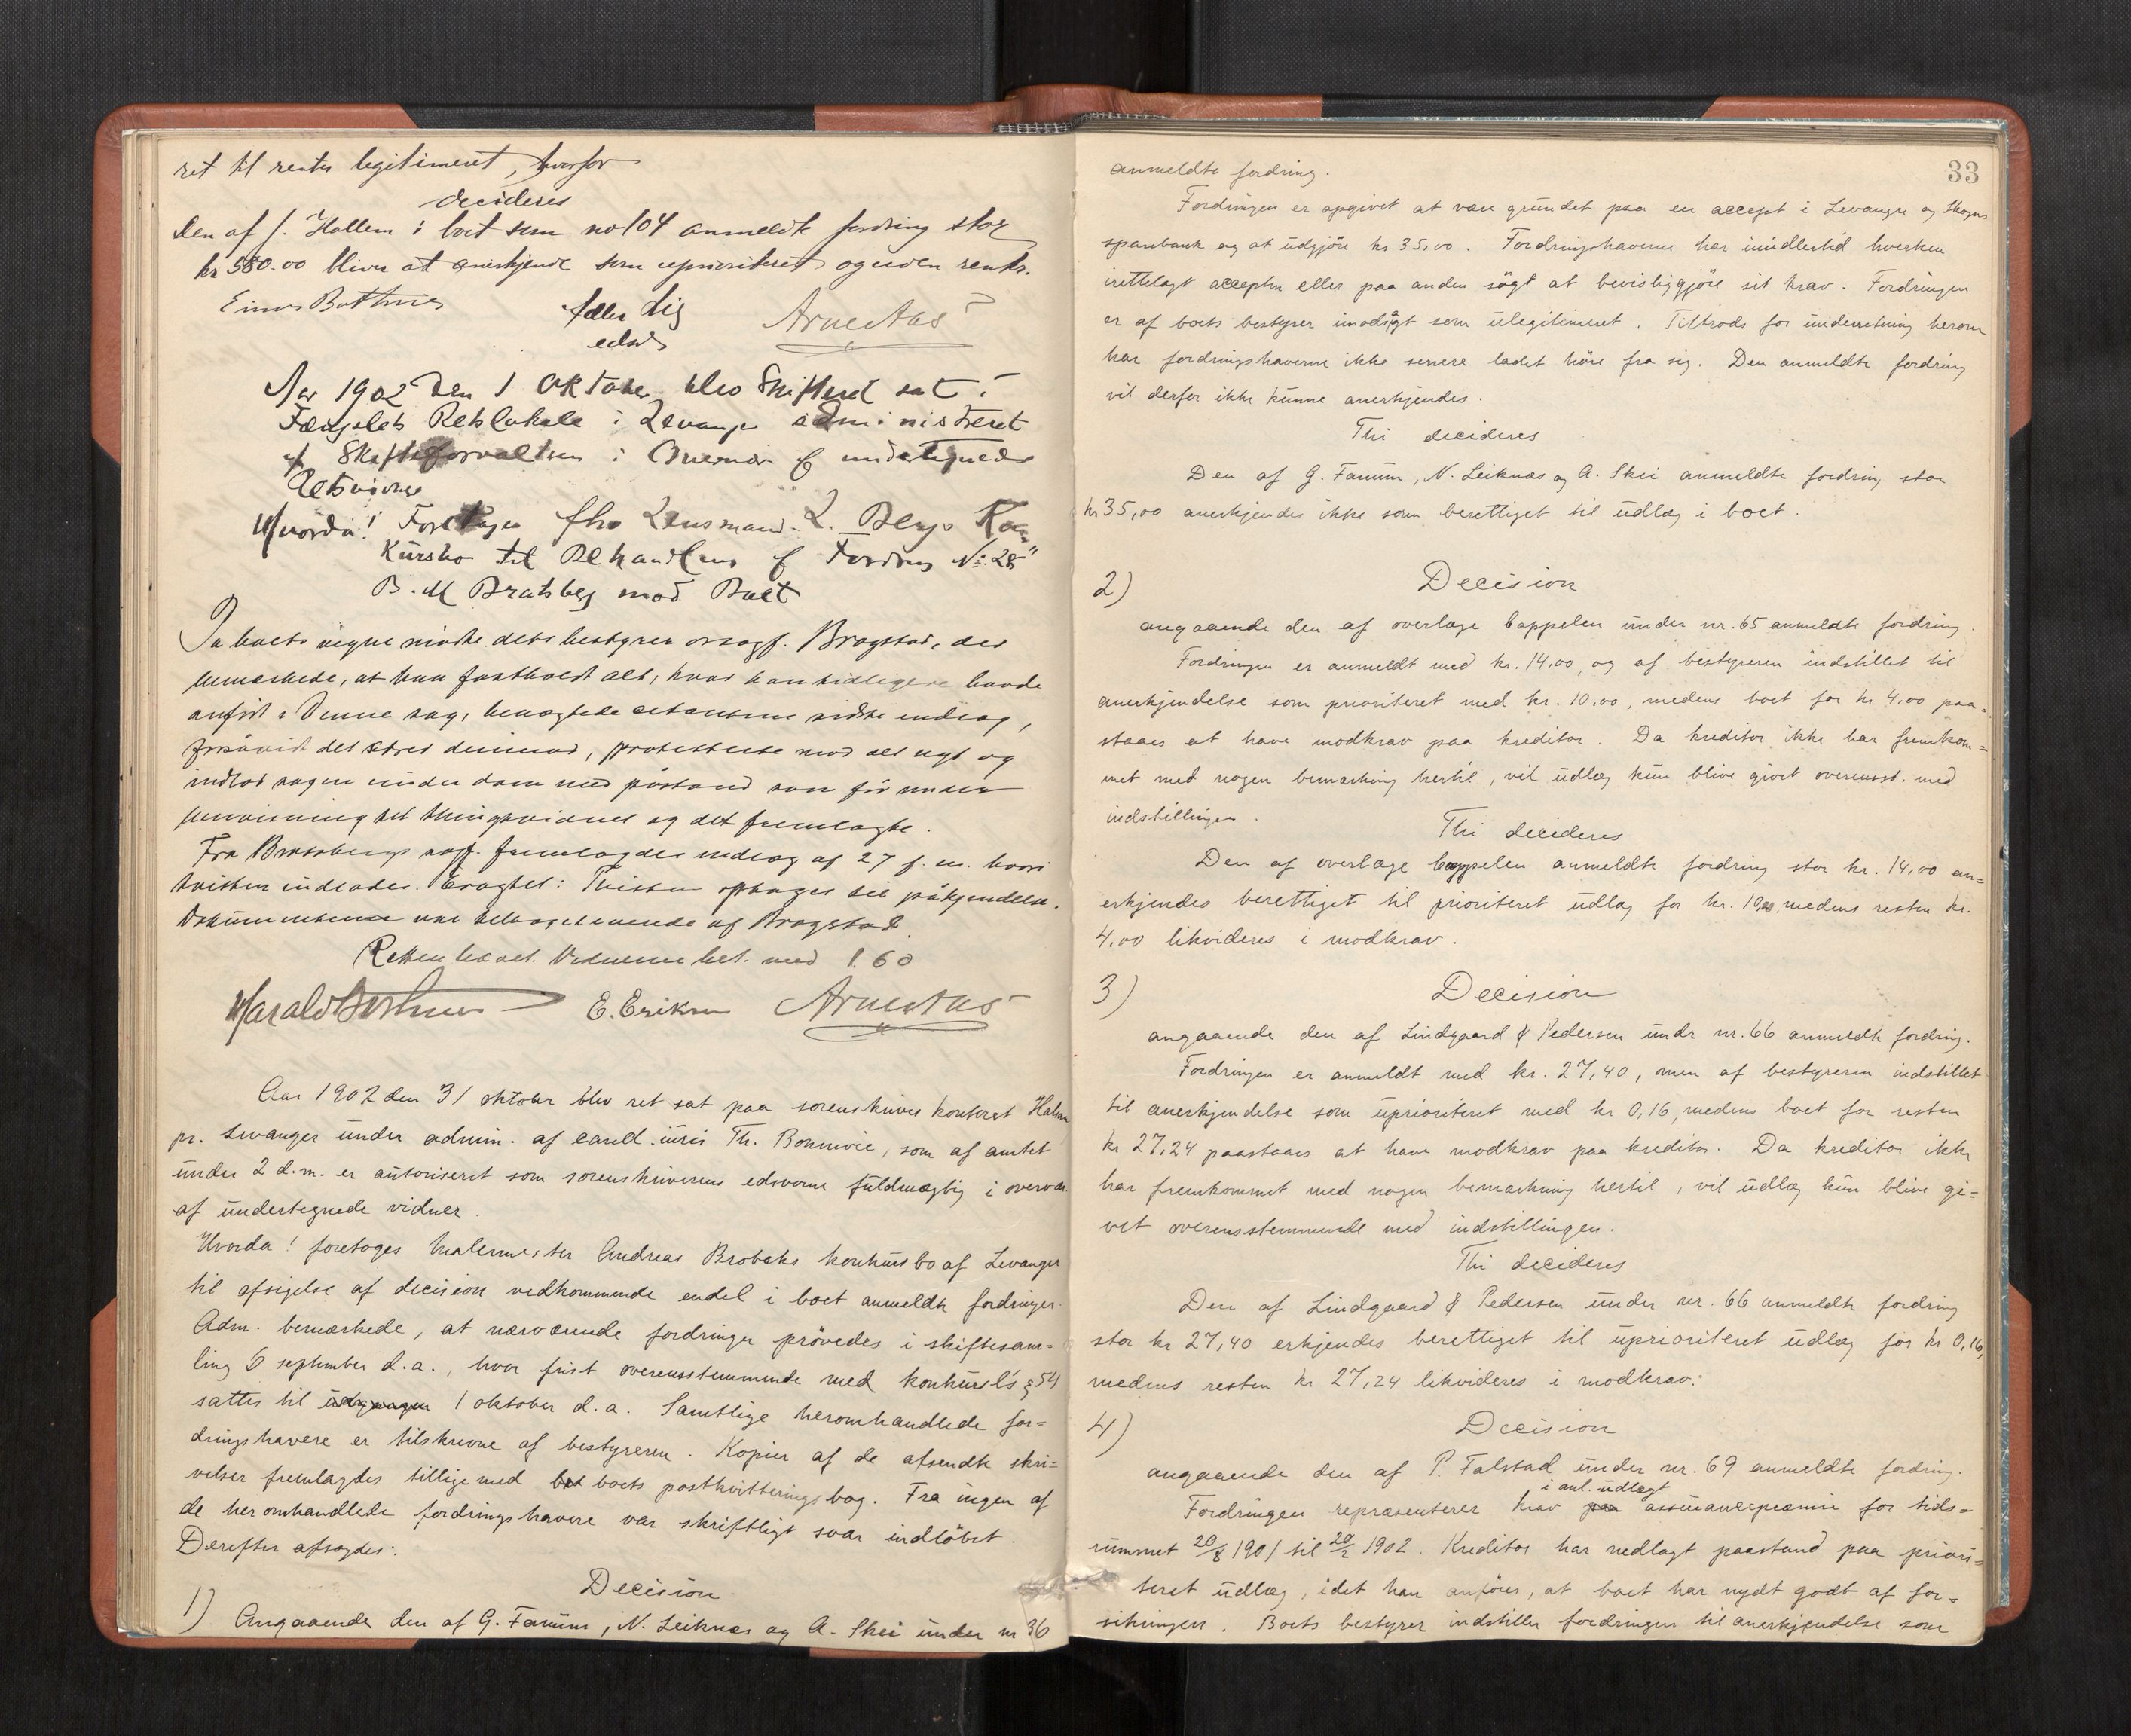 ret til renter legitimeret, hvorfor
decideres
Den af J. Hallem i boet som no 104 anmeldte fordring stor
kr 580.00 bliver at anerkjende som uprioriteret og uden renter.
Einar Bothner
Arne Aas
edsv
Aar 1902 den 1 Oktober blev Skifteret sat i
Fængslets Retslokale i Levanger administreret
af Skifteforvalteren i Overvær af undertegnede
Retsvidner
Hvorda! Foretoges fhv Lensmand L. Bergs Kon
kursbo til Behandling af Fordring No. 28
B. M Bratsberg mod Boet
Paa boets vegne mødte dets bestyrer orsagf. Bragstad, der
bemærkede, at han fastholdt alt, hvad han tidligere havde
anført i denne sag, benægtede citantens sidste indlæg,
forsåvidt det stred derimod, protesterede mod alt nyt og
indlod sagen under dom med påstand som før under
henvisning til thingsvidnet og det fremlagte.
Fra Bratsbergs sagf. fremlagdes indlæg af 27 f. m. hvori
tvisten indlades. Eragtet: Tvisten optages til påkjendelse.
Dokumenterne var tilbageleverede af Bragstad.
Retten hævet. Vidnerne bet. med 1.60
Harald Bothner E. Eriksen Arne Aas
Aar 1902 den 31 oktober blev ret sat paa sorenskriver kontoret
pr. Levanger under admin. af cand. iuris Th. Bonnevie, som af amtet
under 2 d.m. er autoriseret som sorenskriverens edsvorne fuldmægtig i overvær
af undertegnede vidner.
Hvorda! foretoges malermester Andreas Brobaks konkursbo af Levanger
til afsigelse af decision vedkommende endel i boet anmeldte fordringer.
Adm. bemærkede, at nærværende fordringer prövedes i skiftesam=
ling 6 september d.a., hvor frist overensstemmende med konkursl's § 54
sattes til udgangen 1 oktober d.a. Samtlige heromhandlede for=
dringshavere er tilskrevne af bestyreren. Kopier af de afsendte skri=
velser fremlagdes tilligemed bet boets postkvitteringsbog. Fra ingen af
de heromhandlede fordringshavere var skriftligt svar indlöbet.
Derefter afsagdes:
Decision
1) Angaaende den af G. Fanum, N. Leiknæs og A. Skei under nr 36
33
anmeldte fordring.
Fordringen er opgivet at være grundet paa en accept i Levanger og Skogns
sparebank og at udgjöre kr 35,00. Fordringshaverne har imidlertid hverken
irettelagt accepten eller paa anden sögt at bevisliggjöre sit krav. Fordringen
er af boets bestyrer imodsagt som ulegitimeret. Tiltrods for underretning herom
har fordringshaverne ikke senere ladet höre fra sig. Den anmeldte fordring
vil derfor ikke kunne anerkjendes.
Thi decideres
Den af G. Fanum, N. Leiknæs og A. Skei anmeldte fordring stor
kr 35,00 anerkjendes ikke som berettiget til udlæg i boet.
2) Decision
angaaende den af overlæge Cappelen under nr. 65 anmeldte fordring.
Fordringen er anmeldt med kr. 14,00, og af bestyreren indstillet til
anerkjendelse som prioriteret med kr. 10,00, medens boet for kr 4,00 paa=
staaes at have modkrav paa kreditor. Da kreditor ikke har fremkom=
met med nogen bemærkning hertil, vil udlæg kun blive givet overensst. med
indstillingen.
Thi decideres
Den af overlæge Cappelen anmeldte fordring stor kr. 14,00 an=
erkjendes berettiget til prioriteret udlæg for kr. 10,00, medens resten kr.
4,00 likvideres i modkrav.
3) Decision
angaaende den af Lindgaard & Pedersen undr nr. 66 anmeldte fordring.
Fordringen er anmeldt med kr. 27,40, men af bestyreren indstillet
til anerkjendelse som uprioriteret med kr 0,16, medens boet for resten
kr 27,24 paastaaes at have modkrav paa kreditor. Da kreditor ikke
har fremkommet med nogen bemærkning hertil, vil udlæg kun blive gi=
vet overensstemmende med indstillingen.
Thi decideres
Den af Lindgaard & Pedersen under nr. 66 anmeldte fordring
stor kr 27,40 erkjendes berettiget til uprioriteret udlæg for kr 0,16,
medens resten kr 27,24 likvideres i modkrav.
4) Decision
angaaende den af P. Falstad under nr. 69 anmeldte fordring.
i anl. udlagt
Fordringen repræsenterer krav paa assurancepræmie for tids=
rummet 20/8 1901 til 20/2 1902. Kreditor har nedlagt paastand paa priori=
teret udlæg, idet han anförer, at boet har nydt godt af for=
sikringen. Boets bestyrer indstiller fordringen til anerkjendelse som